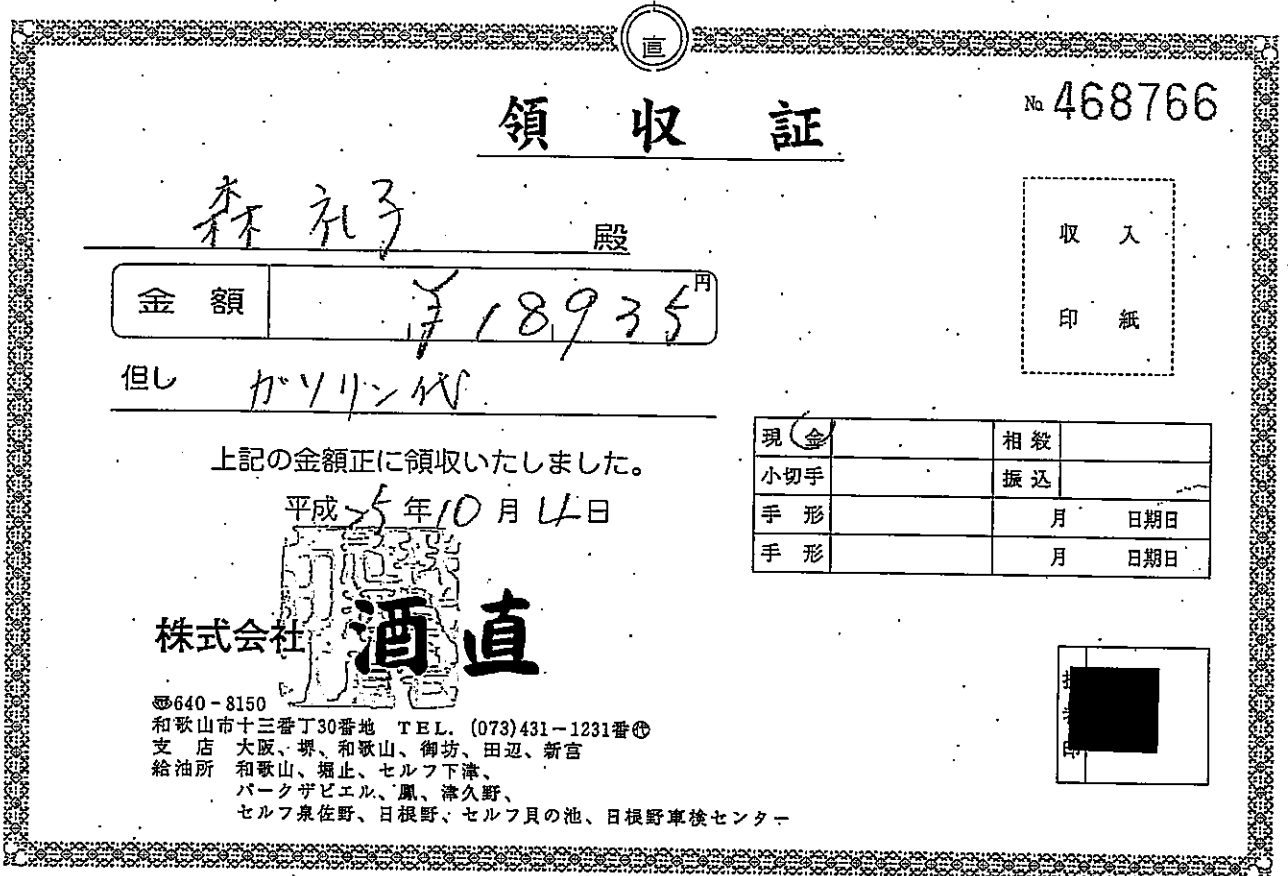 直
領収証
№ 468766
森 礼子 殿
収入
印紙
金額 ¥18,935 円
但し ガソリン代
上記の金額正に領収いたしました。
平成 25 年 10 月 4 日
現金 相殺
小切手 振込
手形 月 日期日
手形 月 日期日
株式会社 酒直
〠640-8150
和歌山市十三番丁30番地 TEL. (073)431-1231番㈹
支店 大阪、堺、和歌山、御坊、田辺、新宮
給油所 和歌山、堀止、セルフ下津、
パークザビエル、鳳、津久野、
セルフ泉佐野、日根野、セルフ貝の池、日根野車検センター